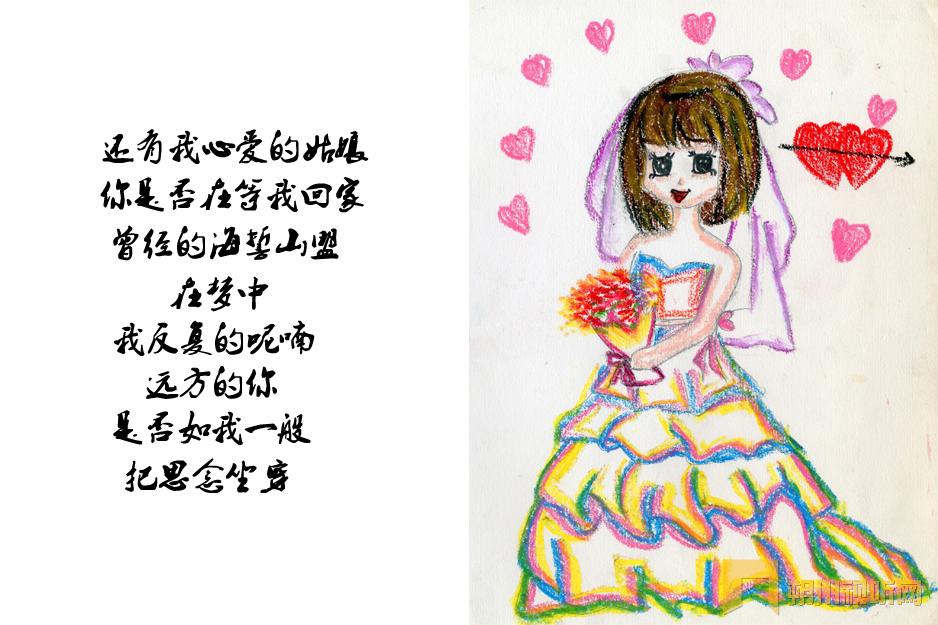 还有我心爱的姑娘
你是否在等我回家
曾经的海誓山盟
在梦中
我反复的呢喃
远方的你
是否如我一般
把思念坐穿
朔州视听网